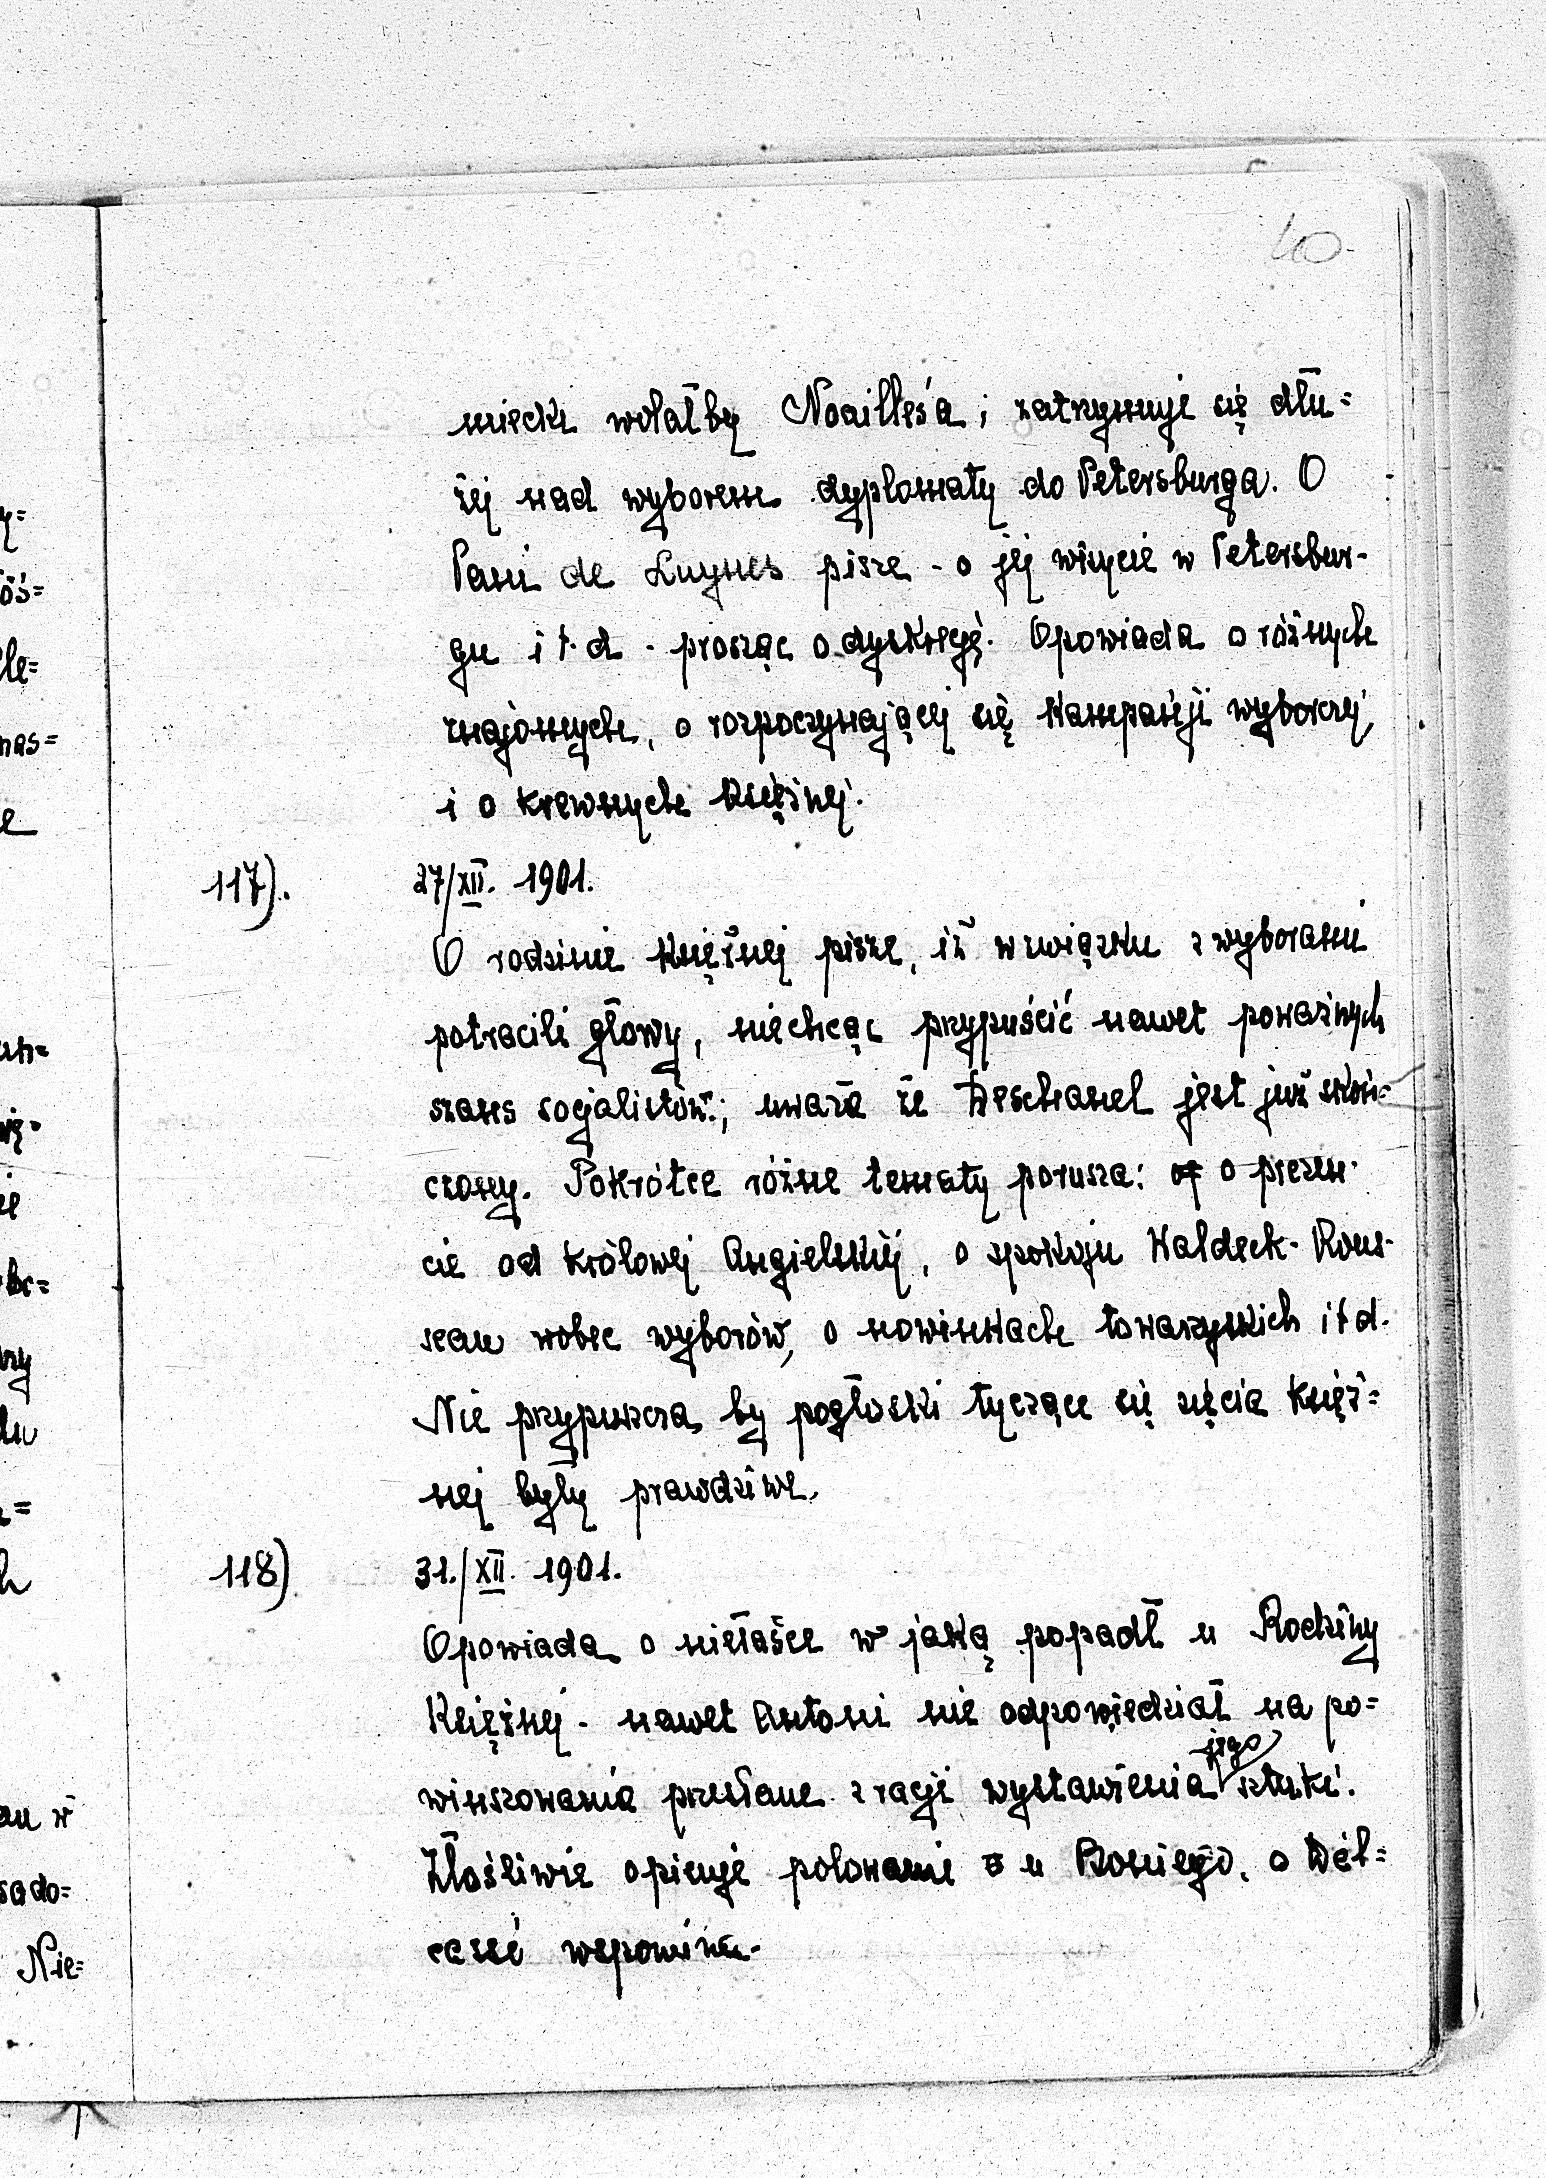 40
miecki wolałby Noailles'a; zatrzymuje się dłu=
żej nad wyborem dyplomaty do Petersburga. O
Pani de Luynes pisze - o jej wizycie w Petersbur-
gu i t. d - prosząc o dyskrecję. Opowiada o różnych
znajomych, o rozpoczynającej się kampanji wyborczej,
i o krewnych Księżnej.
117). 27/XII. 1901.
O rodzinie Księżnej pisze, iż w związku z wyborami
potracili głowy, niechcąc przypuścić nawet poważnych
szans socjalistów; uważa że Deschanel jest już skoń-
czony. Pokrótce różne tematy porusza: o prezen-
cie od królowej Angielskiej, o spokoju Waldeck-Rous-
seau wobec wyborów, o nowinkach towarzyskich i t d.
Nie przypuszcza, by pogłoski tyczące się zięcia Księż=
nej były prawdziwe.
118) 31./XII. 1901.
Opowiada o niełasce w jaką popadł u Rodziny
Księżnej - nawet Antoni nie odpowiedział na po=
winszowania przesłane z racji wystawienia jego sztuki.
Złośliwie opisuje polowanie u Boniego, o Del=
cassé wspomina.
y=
óś=
le=
nas=
e
wię-
ie
br=
rzy
du
=
h
au w
sado=
Nie=